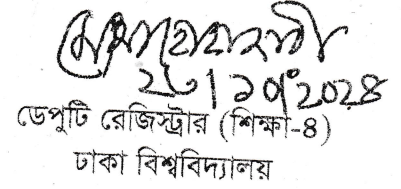 ২৮।১০।২০২৪
ডেপুটি রেজিস্ট্রার (শিক্ষা-৪)
ঢাকা বিশ্ববিদ্যালয়